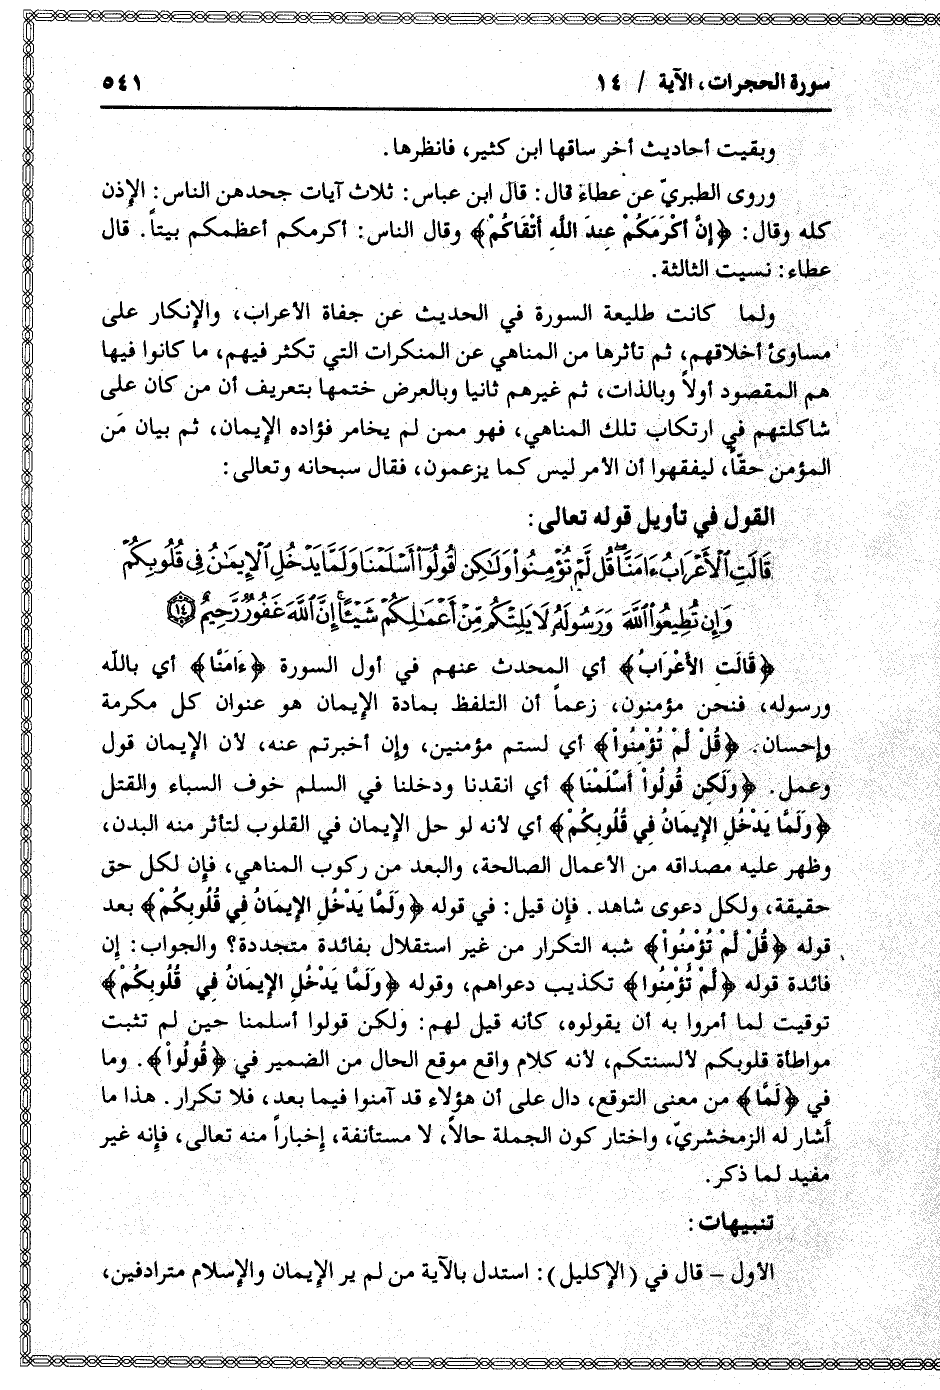 سورة الحجرات، الآية / ١٤ ٥٤١
وبقيت أحاديث أخر ساقها ابن كثير، فانظرها.
وروى الطبريّ عن عطاء قال: قال ابن عباس: ثلاث آيات جحدهن الناس: الإذن
كله وقال: ﴿إِنَّ أَكْرَمَكُمْ عِندَ اللَّهِ أَتْقَاكُمْ﴾ وقال الناس: أكرمكم أعظمكم بيتاً. قال
عطاء: نسيت الثالثة.
ولما كانت طليعة السورة في الحديث عن جفاة الأعراب، والإنكار على
مساوئ أخلاقهم، ثم تأثرها من المناهي عن المنكرات التي تكثر فيهم، ما كانوا فيها
هم المقصود أولاً وبالذات، ثم غيرهم ثانيا وبالعرض ختمها بتعريف أن من كان على
شاكلتهم في ارتكاب تلك المناهي، فهو ممن لم يخامر فؤاده الإيمان، ثم بيان مَن
المؤمن حقّاً، ليفقهوا أن الأمر ليس كما يزعمون، فقال سبحانه وتعالى:
القول في تأويل قوله تعالى:
قَالَتِ ٱلْأَعْرَابُ ءَامَنَّا ۖ قُل لَّمْ تُؤْمِنُوا۟ وَلَٰكِن قُولُوٓا۟ أَسْلَمْنَا وَلَمَّا يَدْخُلِ ٱلْإِيمَٰنُ فِى قُلُوبِكُمْ
وَإِن تُطِيعُوا۟ ٱللَّهَ وَرَسُولَهُۥ لَا يَلِتْكُم مِّنْ أَعْمَٰلِكُمْ شَيْـًٔا ۚ إِنَّ ٱللَّهَ غَفُورٌ رَّحِيمٌ ١٤
﴿قَالَتِ الأَعْرَابُ﴾ أي المحدث عنهم في أول السورة ﴿ءَامَنَّا﴾ أي بالله
ورسوله، فنحن مؤمنون، زعماً أن التلفظ بمادة الإيمان هو عنوان كل مكرمة
وإحسان. ﴿قُلْ لَمْ تُؤْمِنُواْ﴾ أي لستم مؤمنين، وإن أخبرتم عنه، لأن الإيمان قول
وعمل. ﴿وَلَكِن قُولُواْ أَسْلَمْنَا﴾ أي انقدنا ودخلنا في السلم خوف السباء والقتل
﴿وَلَمَّا يَدْخُلِ الإِيمَانُ فِي قُلُوبِكُمْ﴾ أي لأنه لو حل الإيمان في القلوب لتأثر منه البدن،
وظهر عليه مصداقه من الأعمال الصالحة، والبعد من ركوب المناهي، فإن لكل حق
حقيقة، ولكل دعوى شاهد. فإن قيل: في قوله ﴿وَلَمَّا يَدْخُلِ الإِيمَانُ فِي قُلُوبِكُمْ﴾ بعد
قوله ﴿قُلْ لَمْ تُؤْمِنُواْ﴾ شبه التكرار من غير استقلال بفائدة متجددة؟ والجواب: إن
فائدة قوله ﴿لَمْ تُؤْمِنُوا﴾ تكذيب دعواهم، وقوله ﴿وَلَمَّا يَدْخُلِ الإِيمَانُ فِي قُلُوبِكُمْ﴾
توقيت لما أمروا به أن يقولوه، كأنه قيل لهم: ولكن قولوا أسلمنا حين لم تثبت
مواطأة قلوبكم لألسنتكم، لأنه كلام واقع موقع الحال من الضمير في ﴿قُولُواْ﴾. وما
في ﴿لَمَّا﴾ من معنى التوقع، دال على أن هؤلاء قد آمنوا فيما بعد، فلا تكرار. هذا ما
أشار له الزمخشريّ، واختار كون الجملة حالاً، لا مستأنفة، إخباراً منه تعالى، فإنه غير
مفيد لما ذكر.
تنبيهات:
الأول – قال في (الإكليل): استدل بالآية من لم ير الإيمان والإسلام مترادفين،